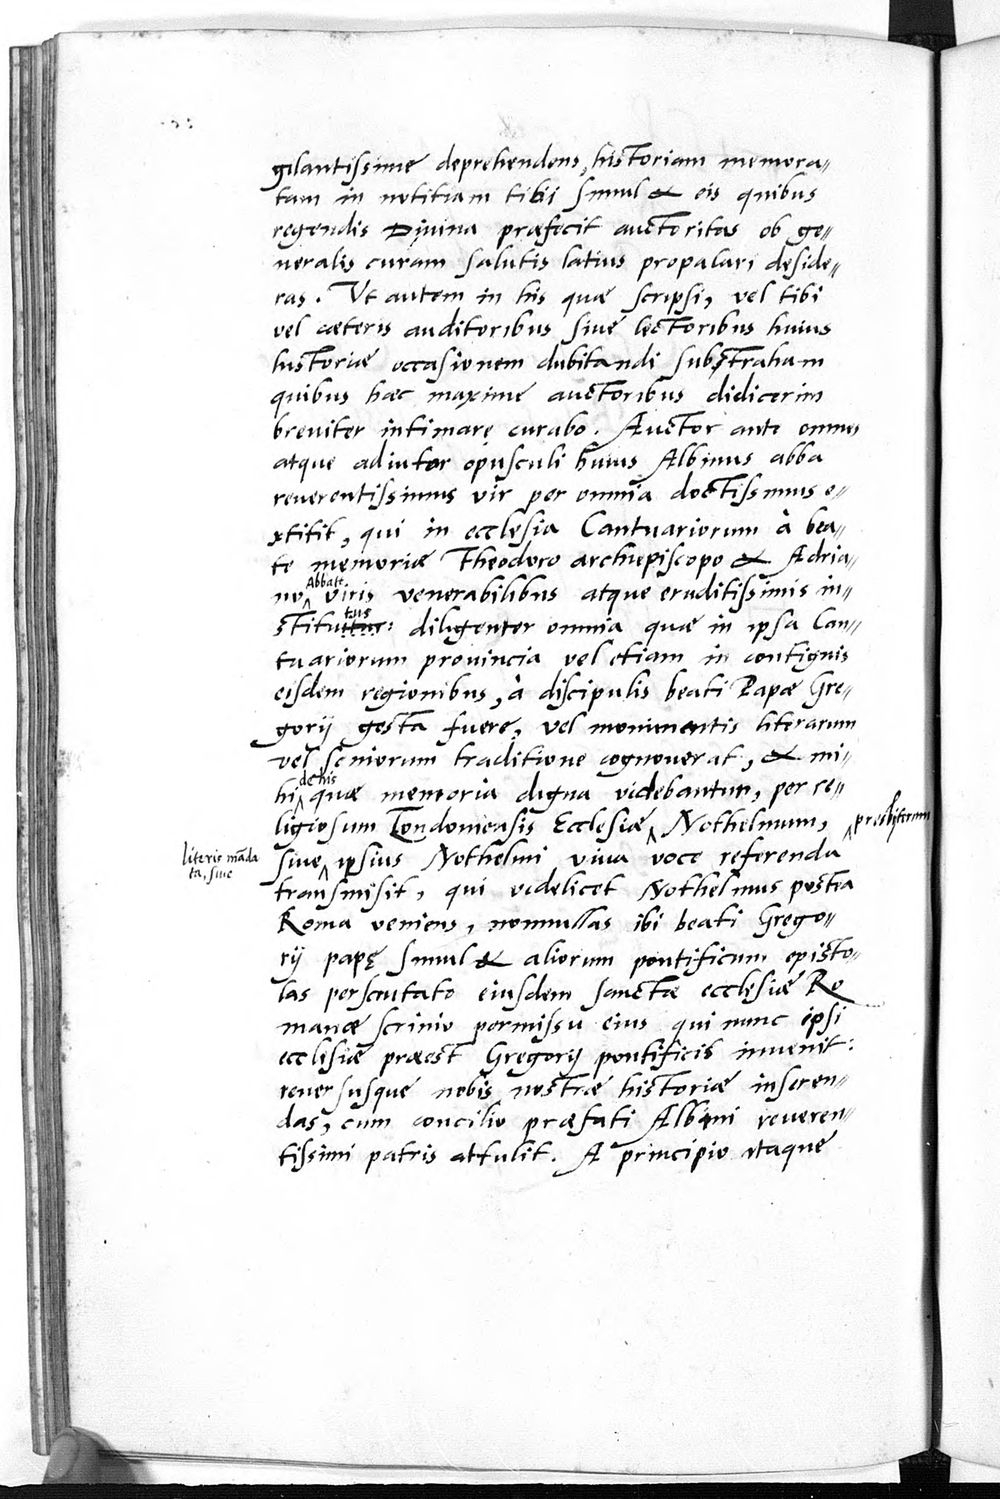 gilantissime deprehendens, historiam memora〃
tam in notitiam tibi simul & eis quibus
regendis Divina præfecit auctoritas ob ge〃
neralis curam salutis latius propalari deside〃
ras. Ut autem in his quæ scripsi, vel tibi
vel cæteris auditoribus sive lectoribus huius
historiæ occasionem dubitandi substraham
quibus hæc maxime auctoribus didicerim
breviter intimare curabo. Auctor ante omnes
atque adiutor opusculi huius Albinus abba
reverentissimus vir per omnia doctissimus e〃
xtitit, qui in ecclesia Cantuariorum à bea〃
te memoriæ Theodoro archiepiscopo & Adria〃
Abbate
no ^ viris venerabilibus atque eruditissimis in〃
tus
stituttur: diligenter omnia quæ in ipsa Can〃
tuariorum provincia vel etiam in contignis
eisdem regionibus, à discipulis beati Papæ Gre〃
gorij gesta fuere, vel monimentis literarum
vel seniorum traditione cognoverat, & mi〃
de his
hi ^ quæ memoria digna videbantur, per re〃
ligiosum Londoniensis Ecclesiæ ^ Nothelmum, ^ presbiterum
literis māda
ta, sive
sive ^ ipsius Nothelmi viva voce referenda
transmisit, qui videlicet Nothelmus postea
Roma veniens, nonnullas ibi beati Grego〃
rij papę simul & aliorum pontificum episto〃
las perscrutato eiusdem sanctæ ecclesiæ Ro
manæ scrinio permissu eius qui nunc ipsi
ecclesiæ præest Gregorij pontificis invenit:
reversusque nobis nostræ historiæ inseren〃
das, cum concilio præfati Albini reveren〃
tissimi patris attulit. A principio itaque